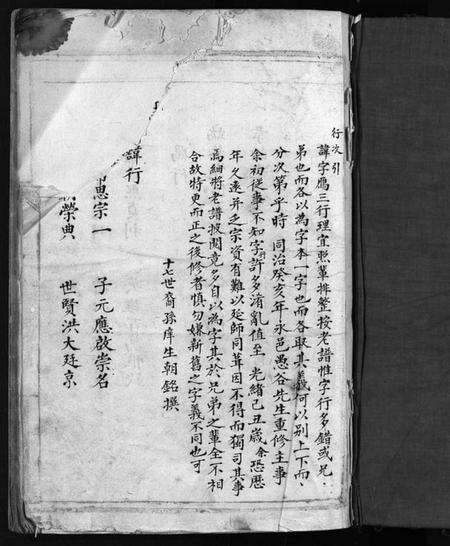 行次引
諱字鷹三行理宜照輩排整按老譜惟字行多錯或兄
弟也而各以為字本一字也而各取其義何以別上下而
分次第乎時 同治癸亥年永邑愚谷先生重修主事
余初從事不知字許多淆亂值至 光緒己丑歲余恐歷
年久遠并乏宗資有難以延師同葺因不得而獨司其事
焉細將老譜披閱竟多自以為字其於兄弟之輩全不相
合故特更而正之後修者慎勿嫌新舊之字義不同也可
十七世裔孫庠生朝銘撰
諱行
惠宗一 子元應啟崇名
榮典 世賢洪大廷京